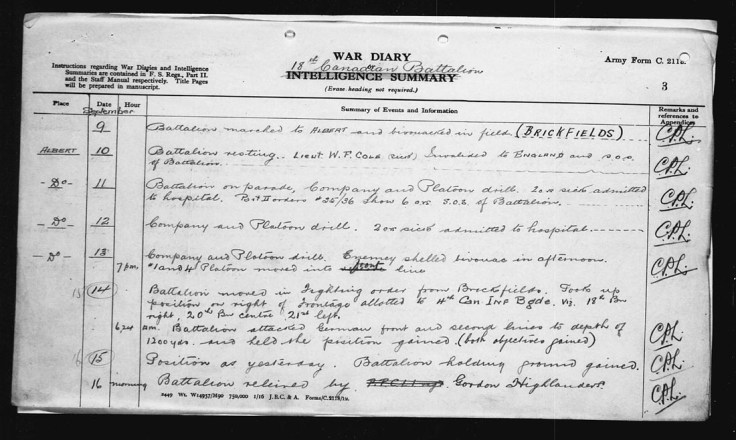 WAR DIARY
18th Canadian Battalion
INTELLIGENCE SUMMARY
(Erase heading not required.)
Army Form C. 2118.
3
Instructions regarding War Diaries and Intelligence
Summaries are contained in F. S. Regs., Part II.
and the Staff Manual respectively. Title Pages
will be prepared in manuscript.
Place Date Hour Summary of Events and Information Remarks and references to Appendices
September
9 Battalion marched to ALBERT and bivouacked in field (BRICKFIELDS) C.P.L.
ALBERT 10 Battalion resting. LIEUT W. F. COLE Invalided to ENGLAND and S.O.S.
of Battalion. C.P.L.
- Do - 11 Battalion on parade, Company and Platoon drill. 2 O.R sick admitted
to hospital. Part II orders #35/36 show 6 O.R's S.O.S. of Battalion. C.P.L.
- Do - 12 Company and Platoon drill. 2 O.R sick admitted to hospital. C.P.L.
- Do - 13 Company and Platoon drill. Enemey shelled bivouac in afternoon.
7 p.m. #1 and 4 Platoon moved into front line C.P.L.
15 14 Battalion moved in fighting order from Brickfields. Took up
position on right of frontage allotted to 4th Can Inf Bgde, viz 18th Bn
right, 20th Bn centre, 21st left.
6,20 am. Battalion attacked German front and second lines to depth of
1200 yds. and held the position gained. (both objectives gained) C.P.L.
16 15 Position as yesterday. Battalion holding ground gained. C.P.L.
16 morning Battalion relieved by Gordon Highlanders. C.P.L.
2449 Wt. W14957/M90 750,000 1/16 J.B.C. & A. Forms/C.2118/12.